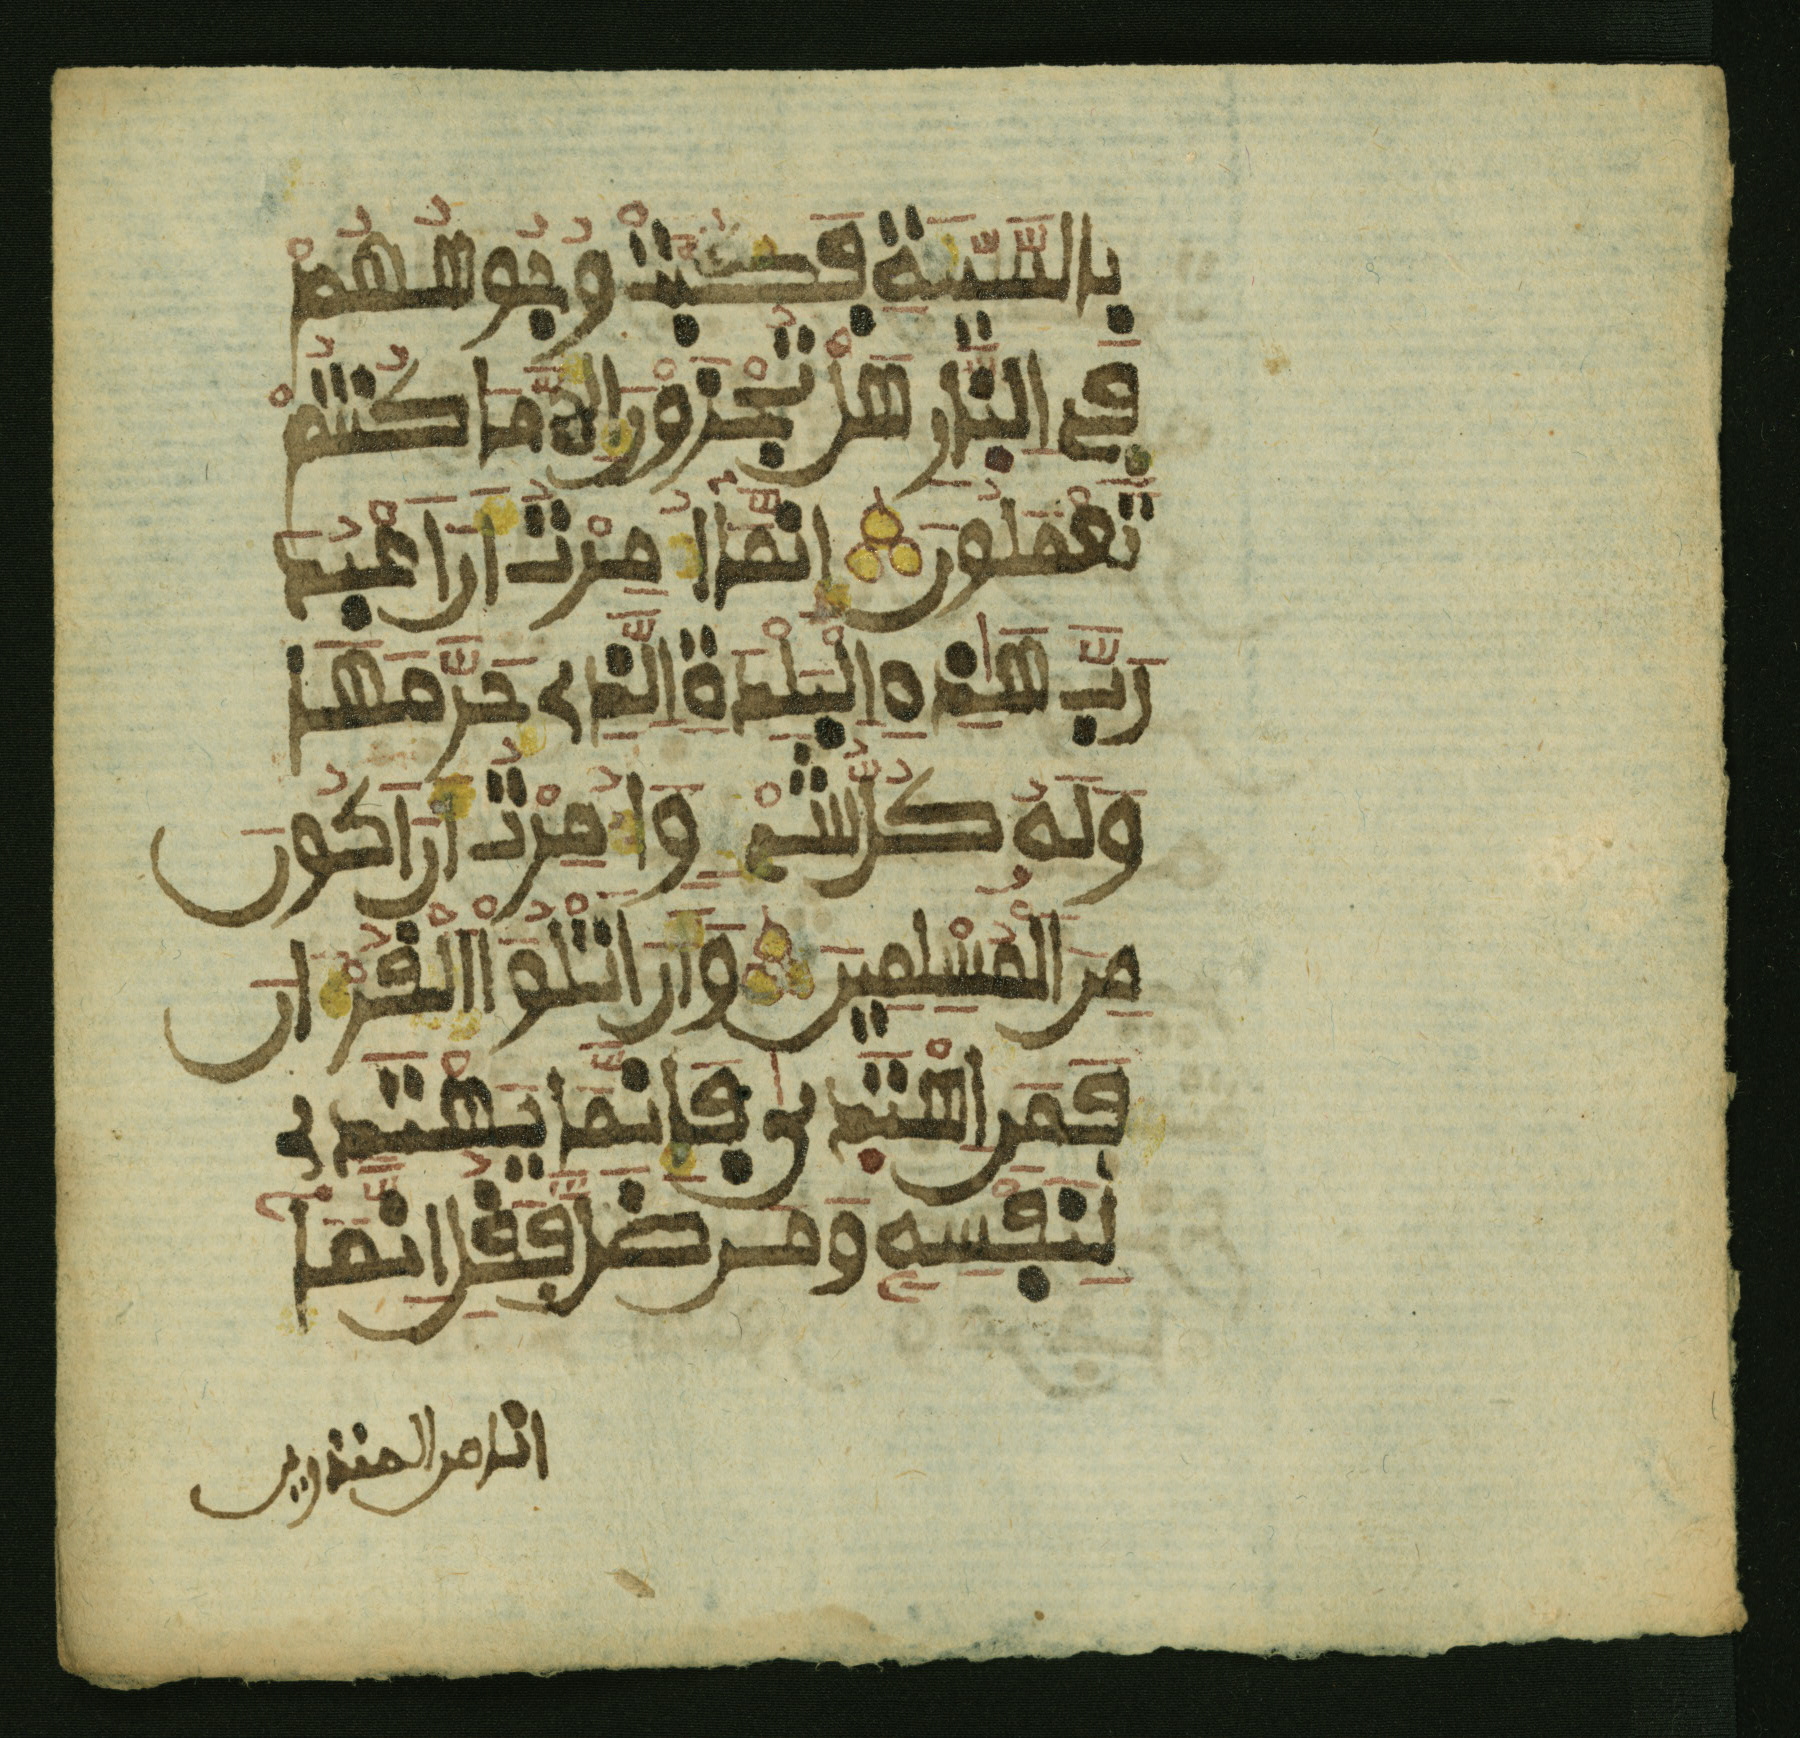 بِالسَّيِّئَةِ فَكُبَّتْ وُجُوهُهُمْ
فِي النَّارِ هَلْ تُجْزَوْنَ إِلَّا مَا كُنتُمْ
تَعْمَلُونَ إِنَّمَا أُمِرْتُ أَنْ أَعْبُدَ
رَبَّ هَٰذِهِ الْبَلْدَةِ الَّذِي حَرَّمَهَا
وَلَهُ كُلُّ شَيْءٍ وَأُمِرْتُ أَنْ أَكُونَ
مِنَ الْمُسْلِمِينَ وَأَنْ أَتْلُوَا الْقُرْآنَ
فَمَنِ اهْتَدَىٰ فَإِنَّمَا يَهْتَدِي
لِنَفْسِهِ وَمَن ضَلَّ فَقُلْ إِنَّمَا
انا من المنذرين